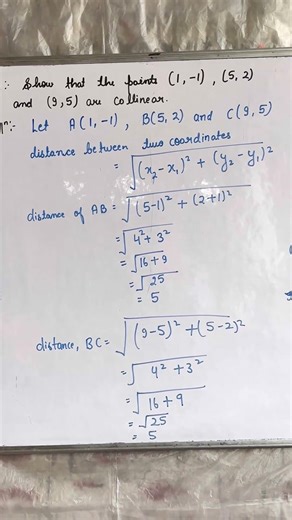 :- Show that the points (1,-1), (5,2)
and (9,5) are collinear.
Let A(1,-1), B(5,2) and C(9,5)
distance between two coordinates
= √(x₂-x₁)² + (y₂-y₁)²
distance of AB = √(5-1)² + (2+1)²
= √4² + 3²
= √16 + 9
= √25
= 5
distance, BC = √(9-5)² + (5-2)²
= √4² + 3²
= √16 + 9
= √25
= 5